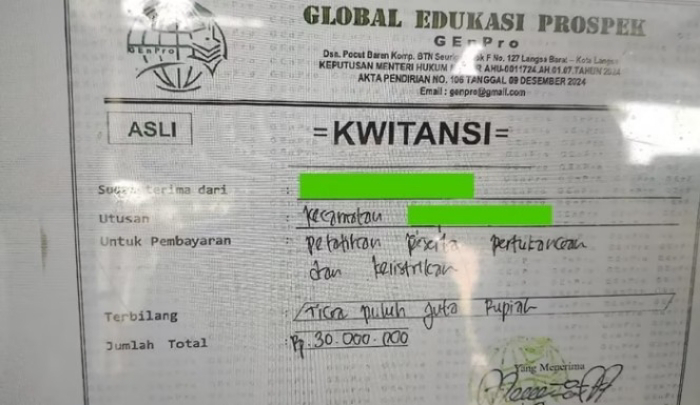 GEnPro
GLOBAL EDUKASI PROSPEK
GEnPro
Dsn. Pocut Baren Komp. BTN Seuriget Blok F No. 127 Langsa Barat - Kota Langsa
KEPUTUSAN MENTERI HUKUM AHU-0011724.AH.01.07.TAHUN 2024
AKTA PENDIRIAN NO. 106 TANGGAL 09 DESEMBER 2024
Email : genpro@gmail.com
ASLI
=KWITANSI=
Sudah terima dari :
Utusan : Kecamatan
Untuk Pembayaran : pelatihan peserta pertukangan
dan kelistrikan
Terbilang : Tiga puluh juta Rupiah
Jumlah Total : Rp. 30.000.000
Yang Menerima